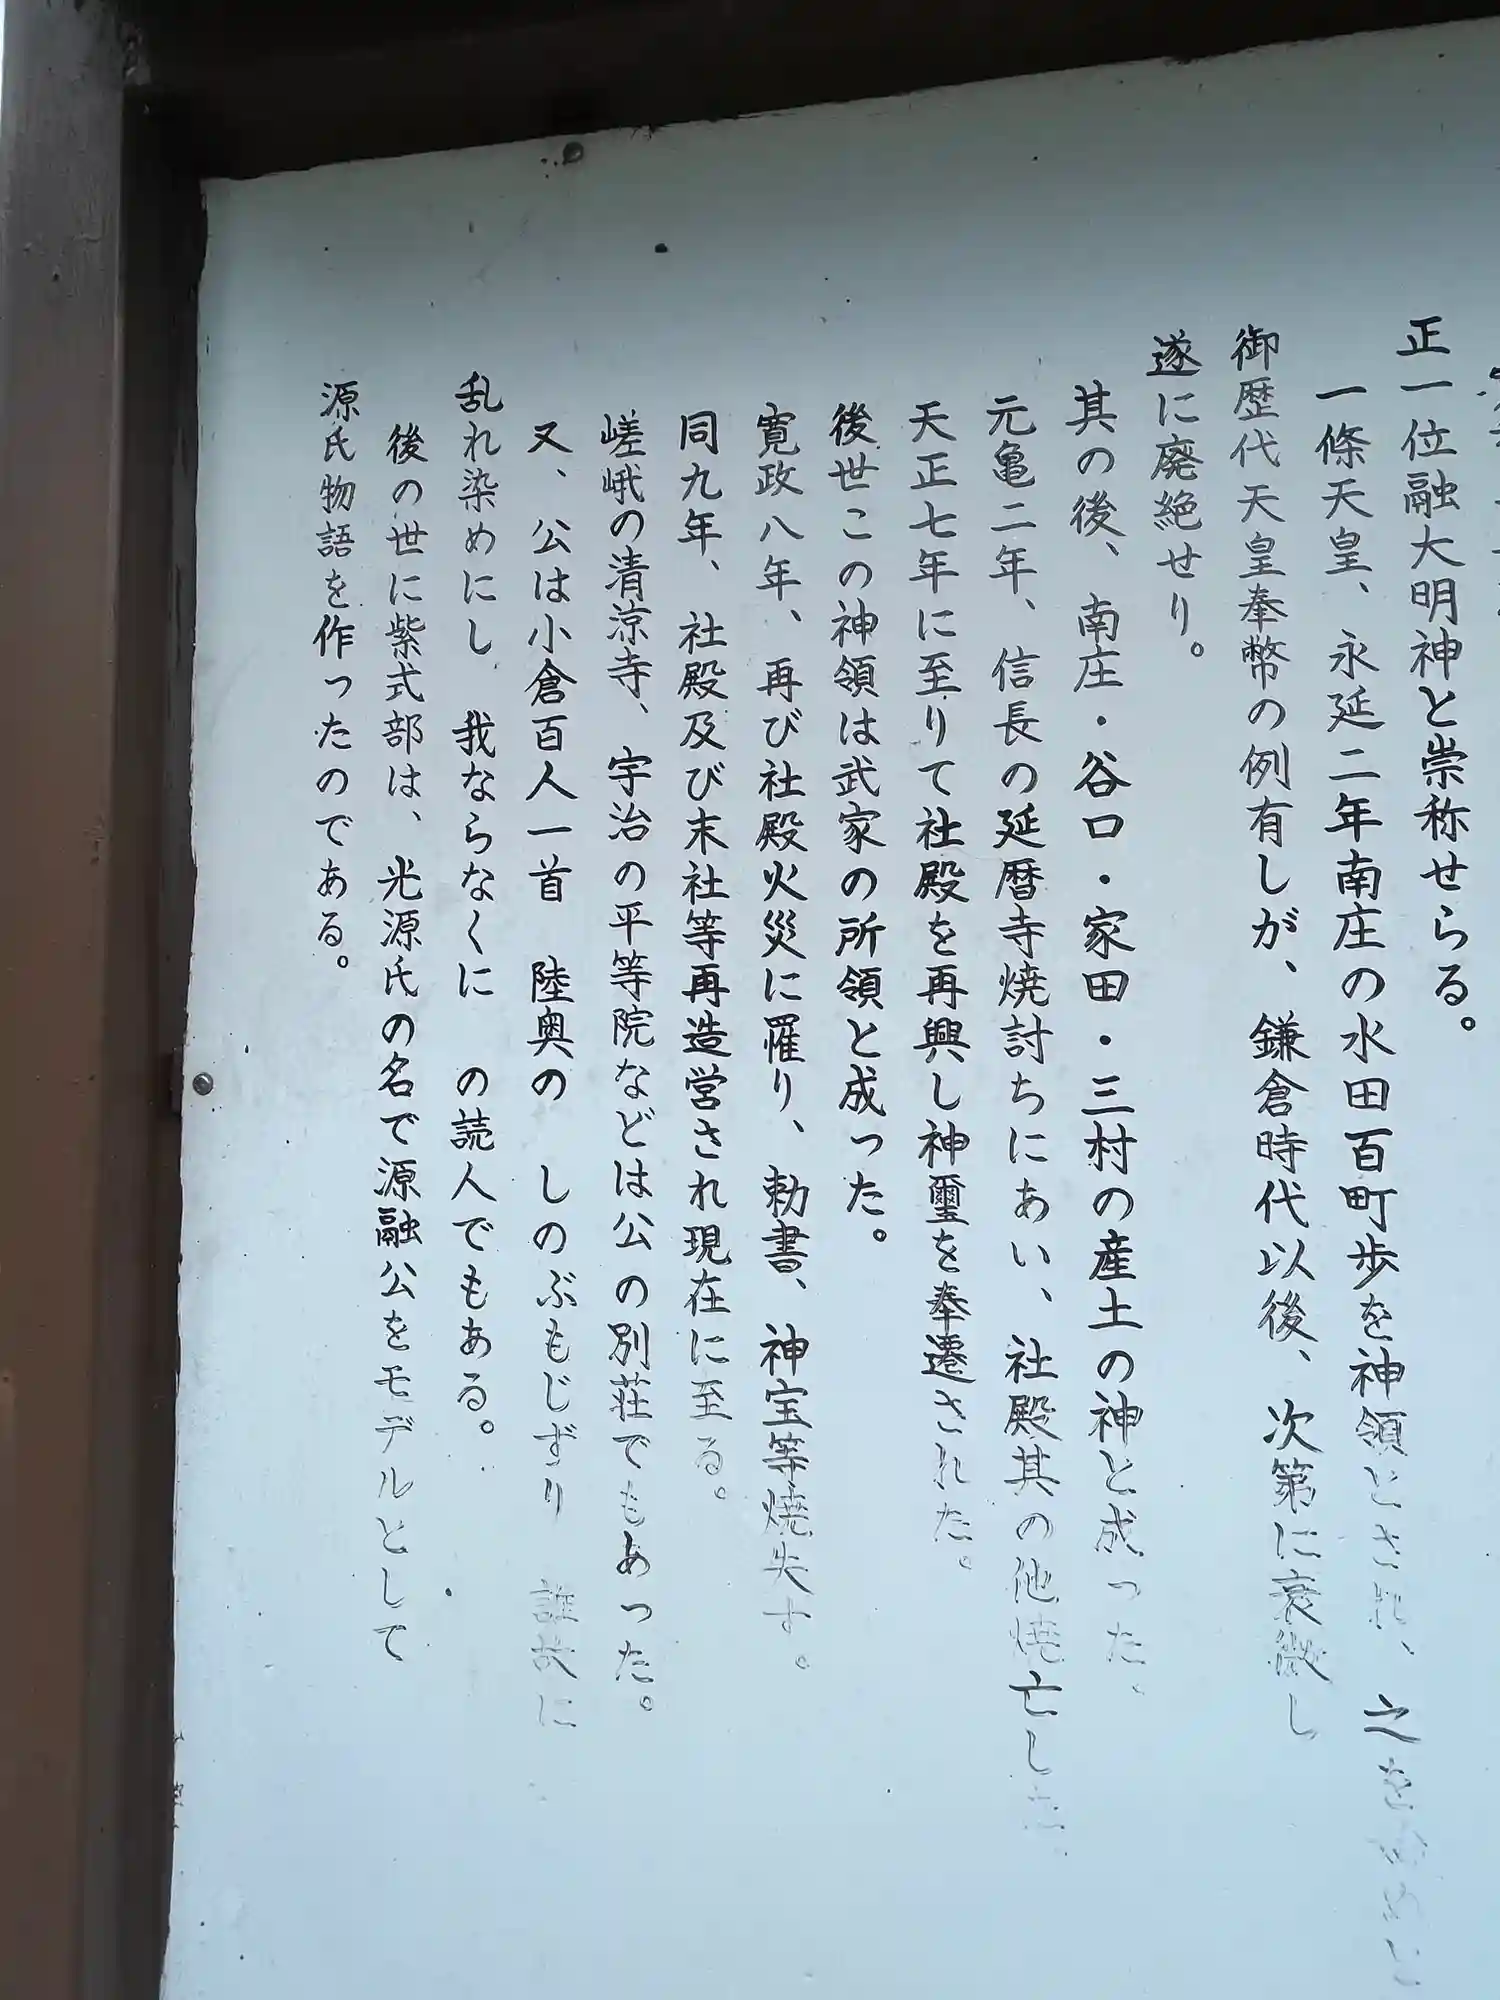 正一位融大明神と崇称せらる。
一條天皇、永延二年南庄の水田百町歩を神領とされ、之を
御歴代天皇奉幣の例有しが、鎌倉時代以後、次第に衰微し
遂に廃絶せり。
其の後、南庄・谷口・家田・三村の産土の神と成った。
元亀二年、信長の延暦寺焼討ちにあい、社殿其の他焼亡し
天正七年に至りて社殿を再興し神璽を奉遷された。
後世この神領は武家の所領と成った。
寛政八年、再び社殿火災に罹り、勅書、神宝等焼失す。
同九年、社殿及び末社等再造営され現在に至る。
嵯峨の清涼寺、宇治の平等院などは公の別荘でもあった。
又、公は小倉百人一首 陸奥の しのぶもじずり 誰故に
乱れ染めにし 我ならなくに の読人でもある。
後の世に紫式部は、光源氏の名で源融公をモデルとして
源氏物語を作ったのである。